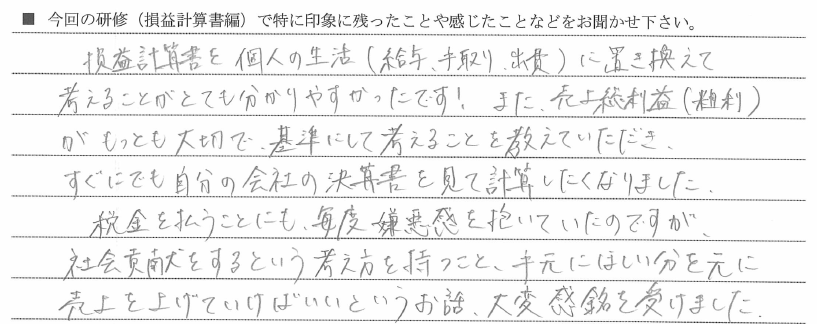 ■ 今回の研修（損益計算書編）で特に印象に残ったことや感じたことなどをお聞かせ下さい。
損益計算書を個人の生活(給与、手取り、出費)に置き換えて
考えることがとても分かりやすかったです! また、売上総利益(粗利)
がもっとも大切で、基準にして考えることを教えていただき、
すぐにでも自分の会社の決算書を見て計算したくなりました。
税金を払うことにも、毎度嫌悪感を抱いていたのですが、
社会貢献をするという考え方を持つこと、手元にほしい分を元に
売上を上げていけばいいというお話、大変感銘を受けました。